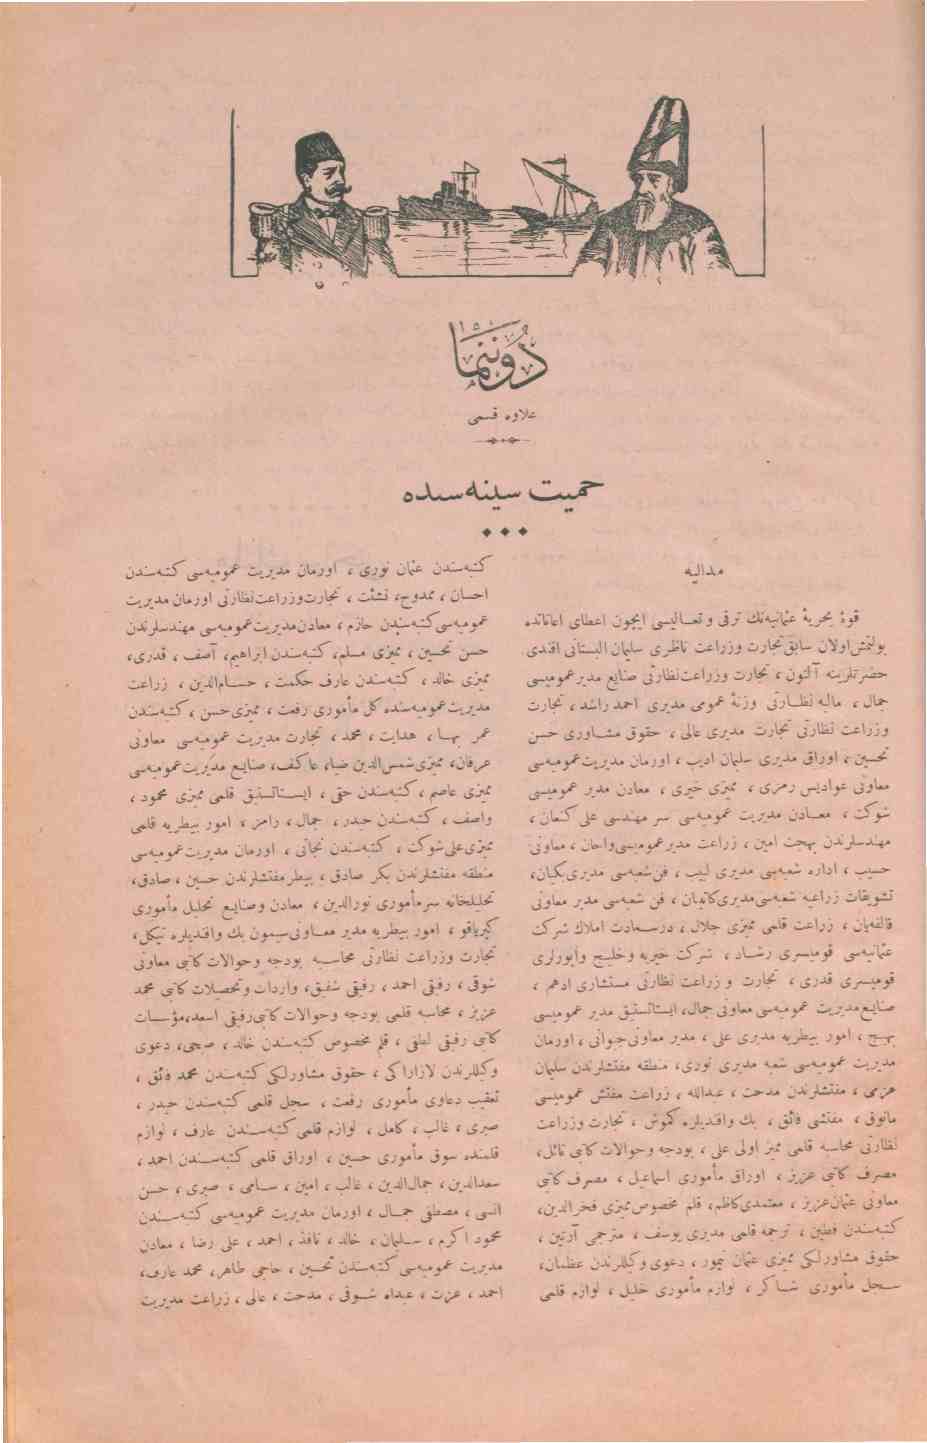 دوننما
علاوه قسمی
حمیت سینه‌سنده
مدالیه
قوۀ بحریۀ عثمانیه‌نك ترقی و تعالیسی ایچون اعطای اعاناتده
بولنمش اولان سابق تجارت وزراعت ناظری سلیمان البستانی افندی
حضرتلرینه آلتون ، تجارت وزراعت نظارتی صنایع مدیر عمومیسی
جمال ، مالیه نظارتی وزنۀ عمومی مدیری احمد راشد ، تجارت
وزراعت نظارتی تجارت مدیری عالی ، حقوق مشاوری حسن
تحسین ، اوراق مدیری سلیمان ادیب ، اورمان مدیریت عمومیه‌سی
معاونی عوادیس رمزی ، ممیزی خیری ، معادن مدیر عمومیسی
شوكت ، معادن مدیریت عمومیه‌سی سر مهندسی علی كنعان ،
مهندسلرندن بهجت امین ، زراعت مدیر عمومیسی واحان ، معاونی
حسیب ، اداره شعبه‌سی مدیری لبیب ، فن شعبه‌سی مدیری بكیان ،
تشویقات زراعیه شعبه‌سی مدیری كاتبان ، فن شعبه‌سی مدیر معاونی
قالفه‌یان ، زراعت قلمی ممیزی جلال ، درسعادت املاك شركت
عثمانیه‌سی قومیسری رشاد ، شركت خیریه وخلیج واپورلری
قومیسری قدری ، تجارت و زراعت نظارتی مستشاری ادهم ،
صنایع مدیریت عمومیه‌سی معاونی جمال ، ایستاتستیق مدیر عمومیسی
بهیج ، امور بیطریه مدیری علی ، مدیر معاونی جوانی ، اورمان
مدیریت عمومیه‌سی شعبه مدیری نوری ، منطقه مفتشلرندن سلیمان
عزمی ، مفتشلرندن مدحت ، عبدالله ، زراعت مفتش عمومیسی
مانوق ، مفتشی فائق ، بك وافندیلره كموش ، تجارت وزراعت
نظارتی محاسبه قلمی ممیز اولی علی ، بودجه وحوالات كاتبی نائل ،
مصرف كاتبی عزیز ، اوراق مأموری اسماعیل ، مصرف كاتبی
معاونی عثمان عزیز ، معتمدی كاظم ، قلم مخصوص ممیزی فخرالدین ،
كتبه‌سندن فطین ، ترجمه قلمی مدیری یوسف ، مترجمی آرتین ،
حقوق مشاورلكی ممیزی عثمان تیمور ، دعوی وكیللرندن عظمان ،
سجل مأموری شاكر ، لوازم مأموری خلیل ، لوازم قلمی
كتبه‌سندن عثمان نوری ، اورمان مدیریت عمومیه‌سی كتبه‌سندن
احسان ، ممدوح ، نشئت ، تجارت وزراعت نظارتی اورمان مدیریت
عمومیه‌سی كتبه‌سندن حازم ، معادن مدیریت عمومیه‌سی مهندسلرندن
حسن تحسین ، ممیزی مسلم ، كتبه‌سندن ابراهیم ، آصف ، قدری ،
ممیزی خالد ، كتبه‌سندن عارف حكمت ، حسام‌الدین ، زراعت
مدیریت عمومیه‌سنده كل مأموری رفعت ، ممیزی حسن ، كتبه‌سندن
عمر بها ، هدایت ، محمد ، تجارت مدیریت عمومیه‌سی معاونی
عرفان ، ممیزی شمس‌الدین ضیا ، عاكف ، صنایع مدیریت عمومیه‌سی
ممیزی عاصم ، كتبه‌سندن حقی ، ایستاتستیق قلمی ممیزی محمود ،
واصف ، كتبه‌سندن حیدر ، جمال ، رامز ، امور بیطریه قلمی
ممیزی علی شوكت ، كتبه‌سندن نجاتی ، اورمان مدیریت عمومیه‌سی
منطقه مفتشلرندن بكر صادق ، بیطر مفتشلرندن حسین ، صادق ،
تحلیلخانه سرمأموری نورالدین ، معادن وصنایع تحلیل مأموری
كیریاقو ، امور بیطریه مدیر معاونی سیمون بك وافندیلره نیكل ،
تجارت وزراعت نظارتی محاسبه بودجه وحوالات كاتبی معاونی
شوقی ، رفیقی احمد ، رفیقی شفیق ، واردات وتحصیلات كاتبی محمد
عزیز ، محاسبه قلمی بودجه وحوالات كاتبی رفیقی اسعد ، مؤسسات
كاتبی رفیقی لطفی ، قلم مخصوص كتبه‌سندن خالد ، صبحی ، دعوی
وكیللرندن لازاراكی ، حقوق مشاورلكی كتبه‌سندن محمد فائق ،
تعقیب دعاوی مأموری رفعت ، سجل قلمی كتبه‌سندن حیدر ،
صبری ، غالب ، كامل ، لوازم قلمی كتبه‌سندن عارف ، لوازم
قلمنده سوق مأموری حسین ، اوراق قلمی كتبه‌سندن احمد ،
سعدالدین ، جمال‌الدین ، غالب ، امین ، سامی ، صبری ، حسن
انسی ، مصطفی جمال ، اورمان مدیریت عمومیه‌سی كتبه‌سندن
محمود اكرم ، سلیمان ، خالد ، نافذ ، احمد ، علی رضا ، معادن
مدیریت عمومیه‌سی كتبه‌سندن تحسین ، حاجی طاهر ، محمد عارف ،
احمد ، عزت ، عبدالله شوقی ، مدحت ، عالی ، زراعت مدیریت